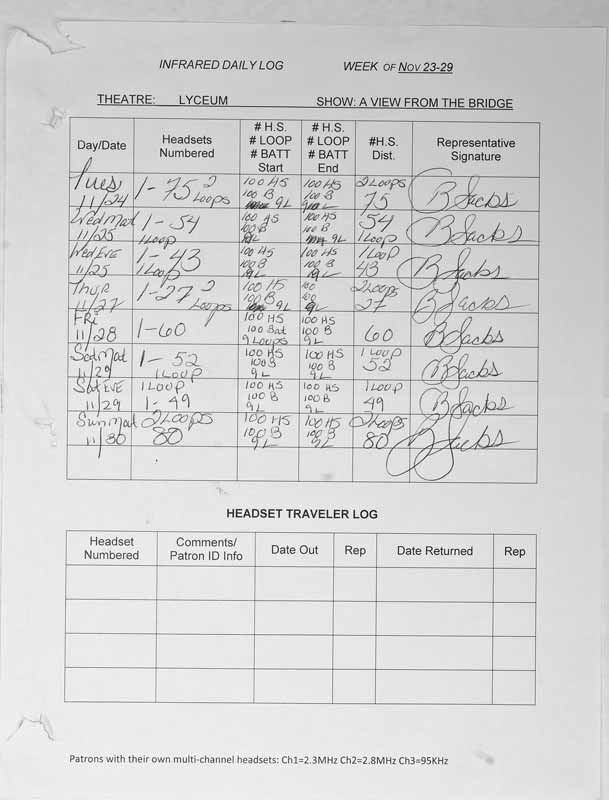 INFRARED DAILY LOG WEEK OF NOV 23-29
THEATRE: LYCEUM SHOW: A VIEW FROM THE BRIDGE
Day/Date
Headsets
Numbered
# H.S.
# LOOP
# BATT
Start
# H.S.
# LOOP
# BATT
End
#H.S.
Dist.
Representative
Signature
Tues
11/24
1-75 2
Loops
100 HS
100 B
9L
100 HS
100 B
9L
2 Loops
75
B Jacks
Wed Mat
11/25
1-54
1 Loop
100 HS
100 B
9L
100 HS
100 B
9L
54
1 Loop
B Jacks
Wed EVE
11/25
1-43
1 Loop
100 HS
100 B
9L
100 HS
100 B
9L
1 Loop
43
B Jacks
Thur
11/27
1-27 2
Loops
100 HS
100 B
9L
100
100
9L
2 Loops
27
B Jacks
Fri
11/28
1-60
100 HS
100 Bat
9 Loops
100 HS
100 B
9L
60
B Jacks
Sat Mat
11/29
1-52
1 Loop
100 HS
100 B
9L
100 HS
100 B
9L
1 Loop
52
B Jacks
Sat EVE
11/29
1 Loop
1-49
100 HS
100 B
9L
100 HS
100 B
9L
1 Loop
49
B Jacks
Sun Mat
11/30
2 Loops
80
100 HS
100 B
9L
100 HS
100 B
9L
2 Loops
80
B Jacks
HEADSET TRAVELER LOG
Headset
Numbered
Comments/
Patron ID Info
Date Out
Rep
Date Returned
Rep
Patrons with their own multi-channel headsets: Ch1=2.3MHz Ch2=2.8MHz Ch3=95KHz